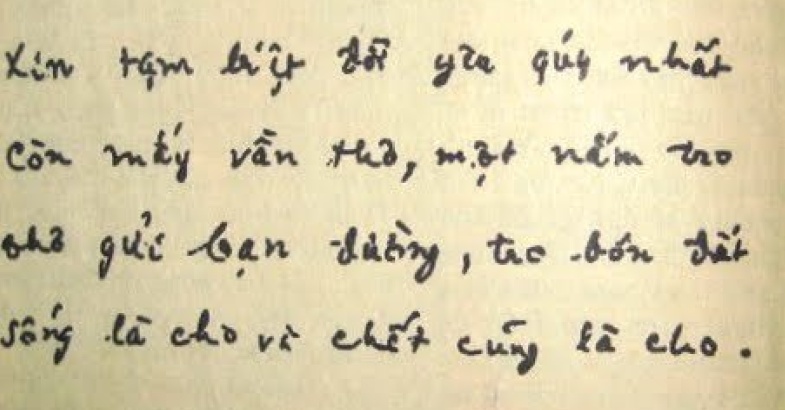 Xin tạm biệt đời yêu quý nhất
Còn mấy vần thơ, một nắm tro
thơ gửi bạn đường, tro bón đất
Sống là cho và chết cũng là cho.